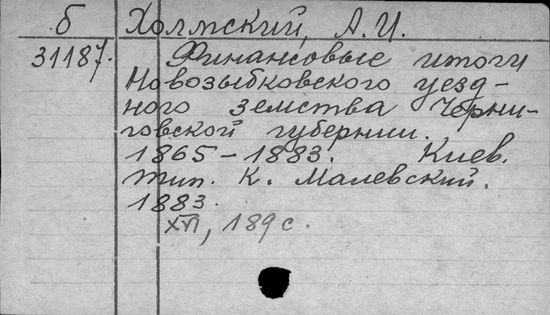 б Холмский, А. И.
31187. Финансовые итоги
Новозыбковского уезд-
ного земства Черни-
говской губернии.
1865-1883. Киев.
тип. К. Малевский.
1883.
XVI, 189 с.